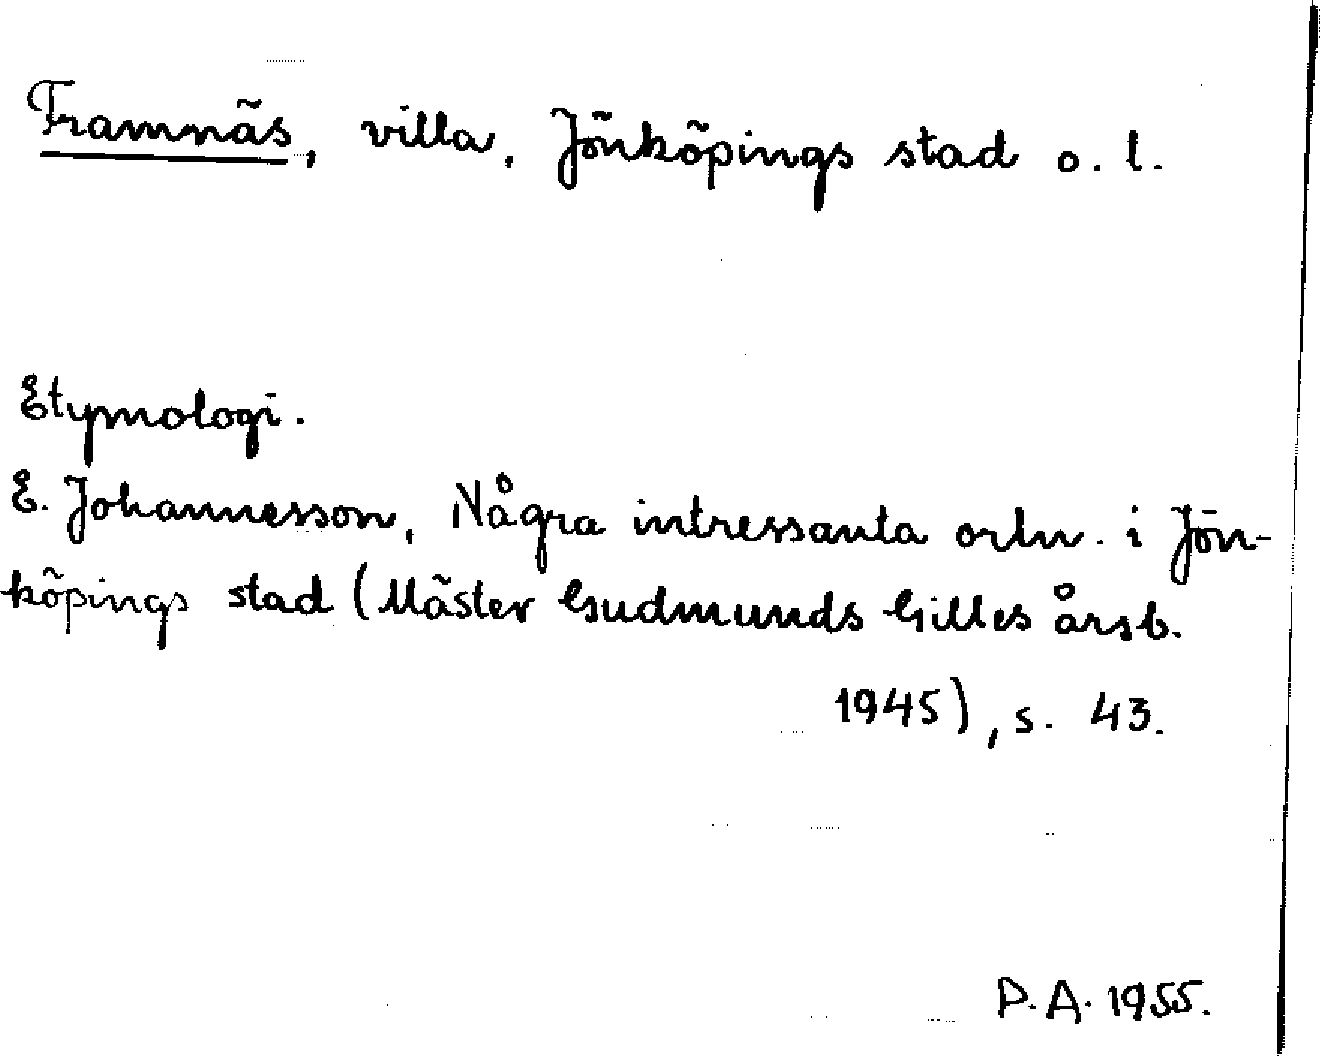 Framnäs, villa, Jönköpings stad o. l.
Etymologi.
E. Johannesson, Några intressanta ortn. i Jön-
köpings stad (Mäster Gudmunds Gilles årsb.
1945), s. 43.
P.A. 1955.